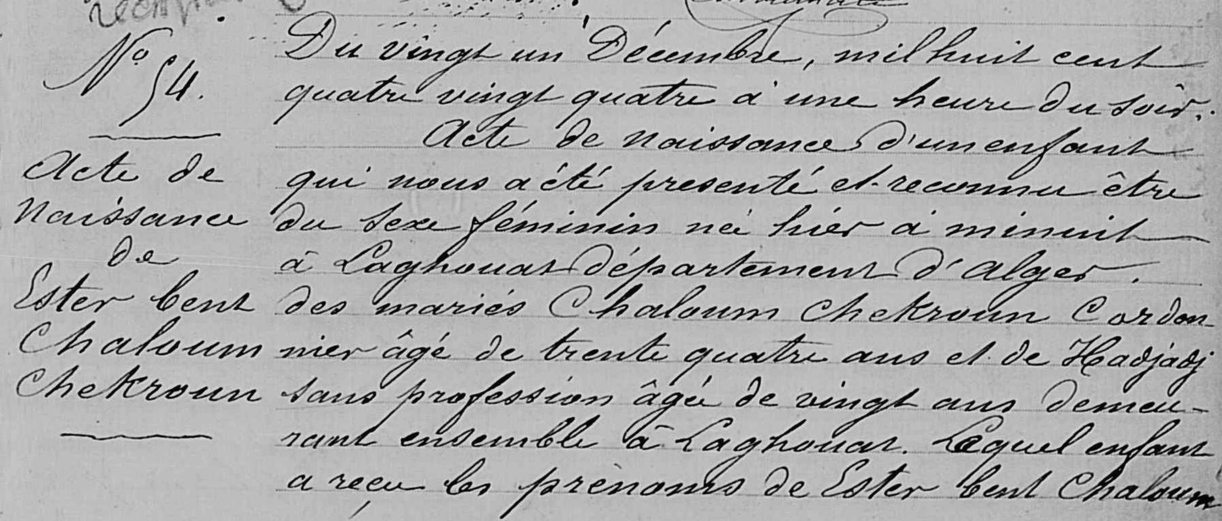 No 54.
Acte de
Naissance
de
Ester bent
Chaloum
Chekroun
Du vingt un Décembre, mil huit cent
quatre vingt quatre à une heure du soir.
Acte de naissance d'un enfant
qui nous a été presenté et reconnu être
du sexe féminin né hier à minuit
à Laghouat département d'Alger.
des mariés Chaloum Chekroun Cordon-
nier âgé de trente quatre ans et de Hadjadj
sans profession âgée de vingt ans demeu-
rant ensemble à Laghouat. Lequel enfant
a reçu les prénoms de Ester bent Chaloum